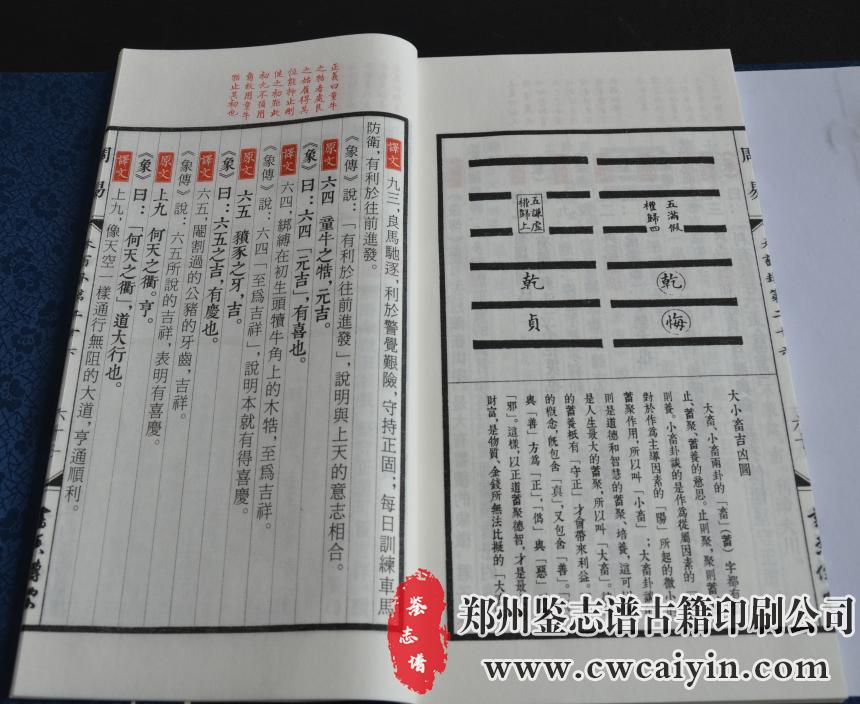 周易
五滿假
權歸四
乾
悔
五謙虛
權歸上
乾
貞
大小畜吉凶圖
大畜、小畜兩卦的「畜」(蓄)字都有
止、蓄聚、蓄養的意思。止則聚，聚則蓄
則養。小畜卦談的是作為從屬因素的
對於作為主導因素的「陽」所起的微小
蓄聚作用，所以叫「小畜」；大畜卦談
則是道德和智慧的蓄聚、培養，這可
是人生最大的蓄聚，所以叫「大畜」。
的蓄養秖有「守正」才會帶來利益。
的概念，既包含「真」，又包含「善」。「
與「善」方為「正」，「偽」與「惡」
「邪」。這樣，以正道蓄聚德智，才是最
財富，是物質、金錢所無法比擬的「大
正義曰童牛
之牿者處艮
之始履得其
位能抑止剛
健之初距此
初九不須用
角故用童牛
牿止其初也
譯文 九三，良馬馳逐，利於警覺艱險，守持正固；每日訓練車馬
防衛，有利於往前進發。
《象傳》說：「有利於往前進發」，說明與上天的意志相合。
原文 六四 童牛之牿，元吉。
《象》曰：六四「元吉」，有喜也。
譯文 六四，綁縛在初生頭犢牛角上的木牿，至為吉祥。
《象傳》說：六四「至為吉祥」，說明本就有得喜慶。
原文 六五 豶豕之牙，吉。
《象》曰：六五之吉，有慶也。
譯文 六五，閹割過的公豬的牙齒，吉祥。
《象傳》說：六五所說的吉祥，表明有喜慶。
原文 上九 何天之衢。亨。
《象》曰：「何天之衢」，道大行也。
譯文 上九，像天空一樣通行無阻的大道，亨通順利。
周易
鉴志谱
郑州鉴志谱古籍印刷公司
www.cwcaiyin.com